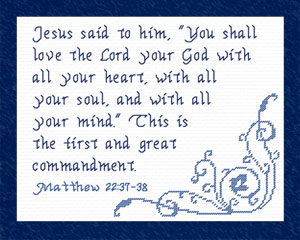 Jesus said to him, "You shall
love the Lord your God with
all your heart, with all
your soul, and with all
your mind." This is
the first and great
commandment.
Matthew 22:37-38